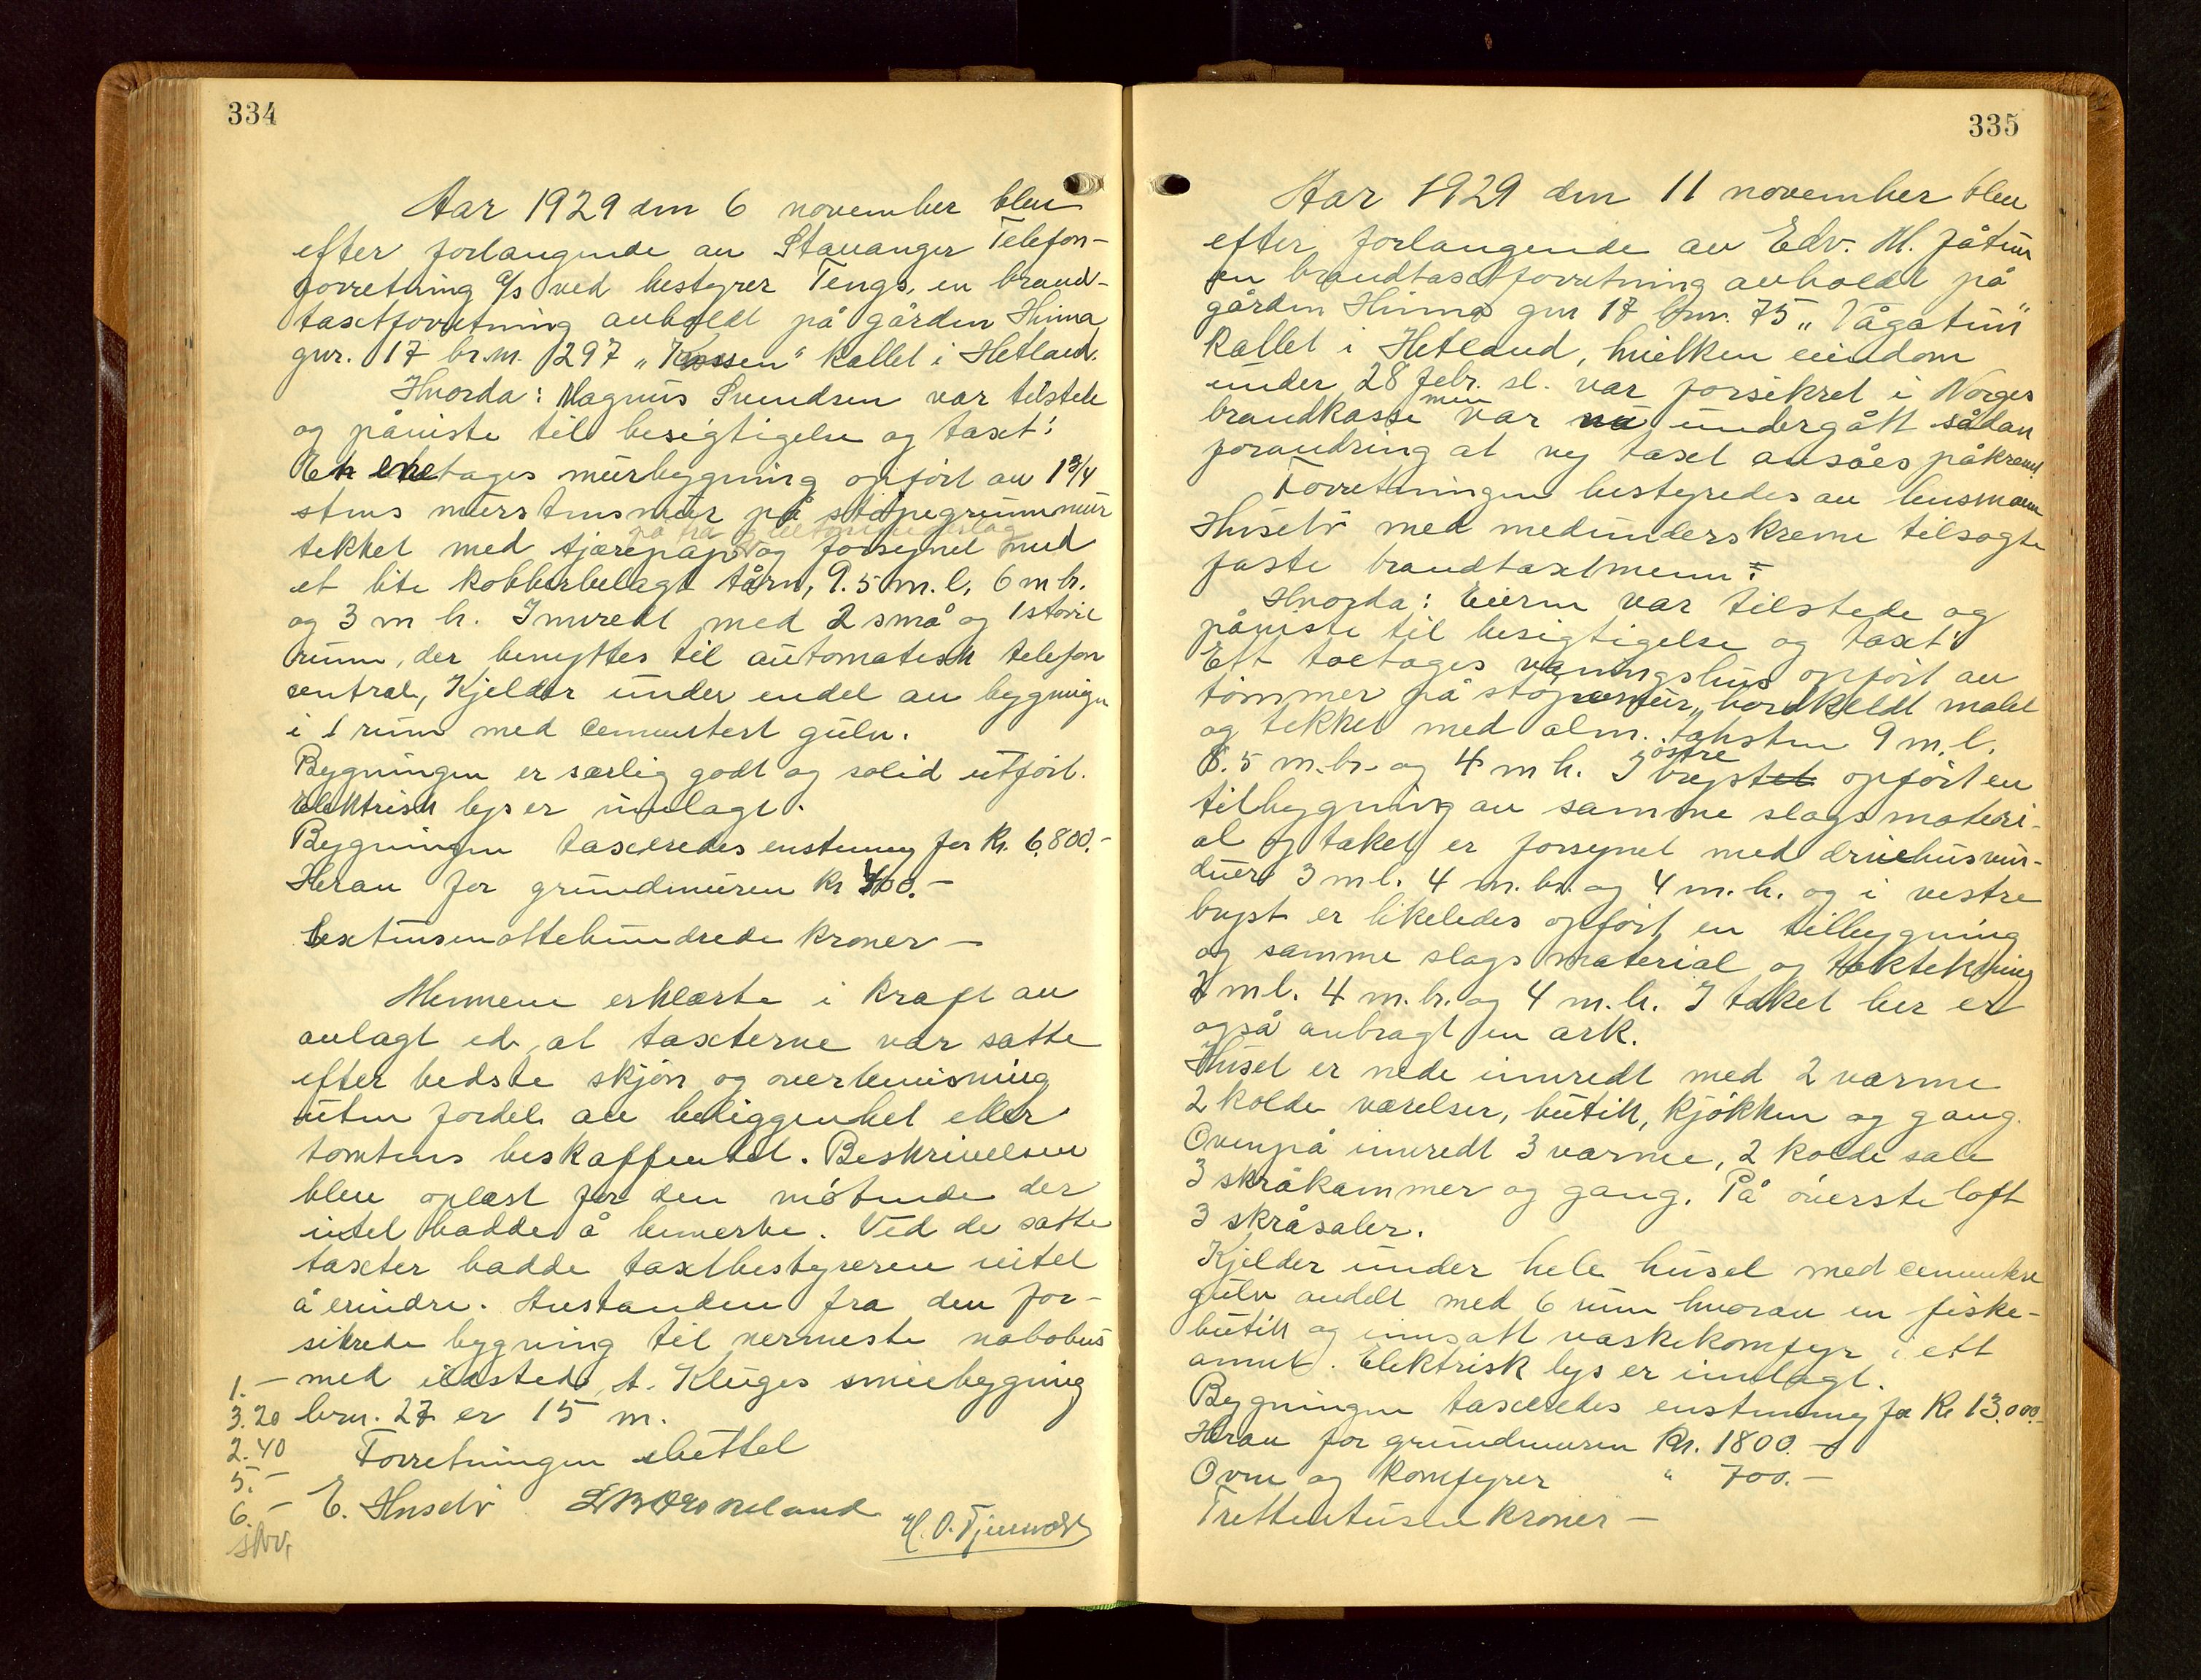 334
Aar 1929 den 6 november blev
efter forlangende av Stavanger Telefon-
forretning a/s ved bestyrer Tengs, en brand-
taxtforretning avholdt på gården Hinna
gnr. 17 br.nr. 297 "Krossen" kallet i Hetland.
Hvorda: Magnus Svendsen var tilstede
og påviste til besigtigelse og taxt:
En enetages murbygning opført av 1 3/4
stens murstensmur på støpegrunnmur
tekket med tjærepap og forsynet med
et lite kobberbelagt tårn, 9.5 m. l. 6 m br.
og 3 m h. Innredt med 2 små og 1 større
rum, der benyttes til automatisk telefon
central, Kjelder under endel av bygningen
i 1 rum med cementert gulv.
Bygningen er særlig godt og solid utført.
Elektrisk lys er innlagt.
Bygningen taxeredes enstemmig for Kr. 6.800.-
Herav for grundmuren Kr 400.-
Sextusenottehundrede kroner -
Mennene erklærte i kraft av
avlagt ed, at taxterne var satte
efter bedste skjøn og overbevisning
uten fordel av beliggenhet eller
tomtens beskaffenhet. Beskrivelsen
blev oplæst for den møtende der
intet hadde å bemerke. Ved de satte
taxter hadde taxtbestyreren intet
å erindre. Avstanden fra den for-
sikrede bygning til nermeste nabohus
1.- med ildsted, A. Kluges smiebygning
3.20 brn. 27 er 15 m.
2.40 Forretningen sluttet
5.-
6.- E. Huselv
skr.
H. O. Tjensvold
335
Aar 1929 den 11 november blev
efter forlangende av Edv. M. Jåtun
en brandtaxtforretning avholdt på
gården Hinna gnr 17 bnr. 75 "Vågatun"
kallet i Hetland, hvilken eiendom
under 28 febr. sl. var forsikret i Norges
brandkasse men var nu undergått sådan
forandring at ny taxt ansåes påkrevet.
Forretningen bestyredes av lensmann
Huselv med medunderskrevne tilsagte
faste brandtaxtmenn:
Hvorda: Eieren var tilstede og
påviste til besigtigelse og taxt:
Ett toetages våningshus opført av
tømmer på støpemur, bordkledt malet
og tekket med alm. taksten 9 m. l.
8.5 m. br. og 4 m h. I østre brystet opført en
tilbygning av samme slags materi-
al og taket er forsynet med drivhusvin-
duer 3 m l. 4 m. br. og 4 m. h. og i vestre
bryst er likeledes opført en tilbygning
og samme slags material og taktekning
2 m l. 4 m. br. og 4 m. h. I taket her er
også anbragt en ark.
Huset er nede innredt med 2 varme
2 kolde værelser, butikk, kjøkken og gang.
Ovenpå innredt 3 varme, 2 kolde sale
3 skråkammer og gang. På øverste loft
3 skråsaler.
Kjelder under hele huset med cementert
gulv avdelt med 6 rum hvorav en fiske-
butikk og innsatt vaskekomfyr i ett
annet. Elektrisk lys er innlagt.
Bygningen taxeredes enstemmig for Kr 13.000.-
Herav for grundmuren Kr. 1800.-
Ovne og komfyrer " 700.-
Trettentusen kroner -